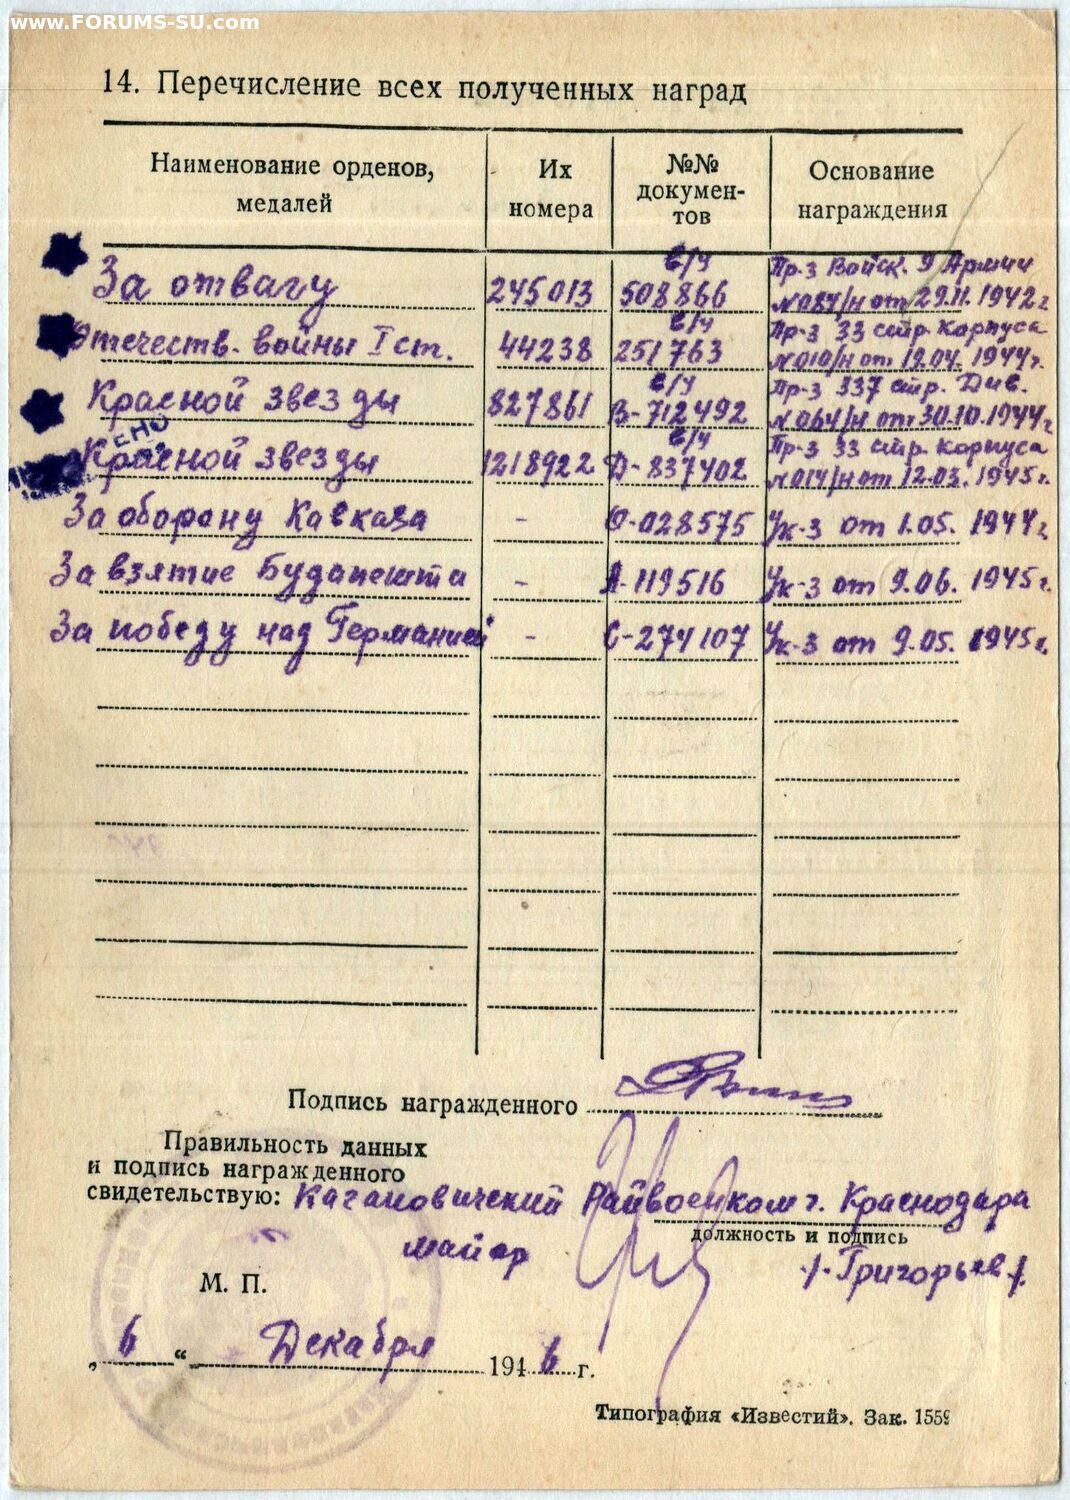 www.FORUMS-SU.com
14. Перечисление всех полученных наград
Наименование орденов, медалей
Их номера
№№ докумен-тов
Основание награждения
в/ч Пр-з Войск. 9 Армии
За отвагу 245013 508866 №084/н от 29.11.1942 г.
в/ч Пр-з 33 стр. Корпуса
Отечеств. войны I ст. 44238 251763 №010/н от 19.04.1944 г.
в/ч Пр-з 337 стр. Див.
Красной звезды 827861 В-712492 №064/н от 30.10.1944 г.
в/ч Пр-з 33 стр. Корпуса
Красной звезды 1218922 Д-837402 №014/н от 12.03.1945 г.
За оборону Кавказа - О-028575 Ук-з от 1.05.1944 г.
За взятие Будапешта - А-119516 Ук-з от 9.06.1945 г.
За победу над Германией - С-274107 Ук-з от 9.05.1945 г.
Подпись награжденного
Правильность данных
и подпись награжденного
свидетельствую: Кагановический Райвоенком г. Краснодара
должность и подпись
майор /-Григорьев-/
М. П.
„6“ Декабря 1946 г.
Типография «Известий». Зак. 1559